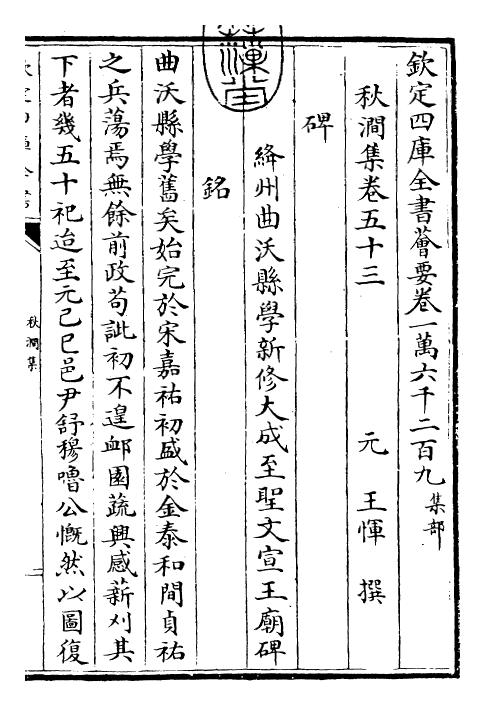 欽定四庫全書薈要卷一萬六千二百九 集部
秋澗集卷五十三
元 王惲 撰
碑
絳州曲沃縣學新修大成至聖文宣王廟碑
銘
曲沃縣學舊矣始完於宋嘉祐初盛於金泰和間貞祐
之兵蕩焉無餘前政苟訿初不遑䘏園蔬興感薪刈其
下者幾五十祀迨至元己巳邑尹舒穆嚕公慨然以圖復
秋澗集
一